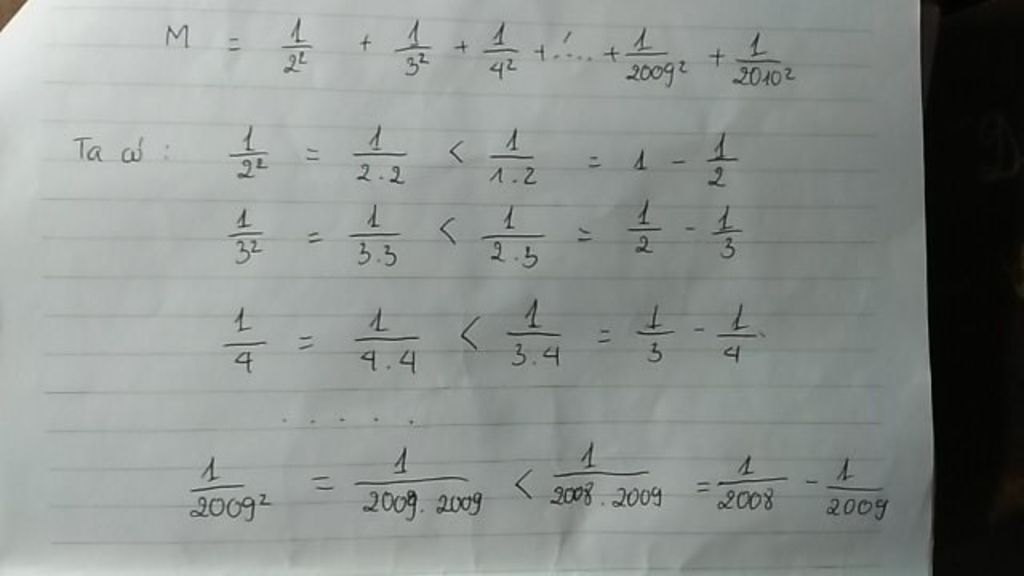 M = 1/2² + 1/3² + 1/4² + ... + 1/2009² + 1/2010²
Ta có : 1/2² = 1/2.2 < 1/1.2 = 1 - 1/2
1/3² = 1/3.3 < 1/2.3 = 1/2 - 1/3
1/4 = 1/4.4 < 1/3.4 = 1/3 - 1/4
. . . . .
1/2009² = 1/2009.2009 < 1/2008.2009 = 1/2008 - 1/2009